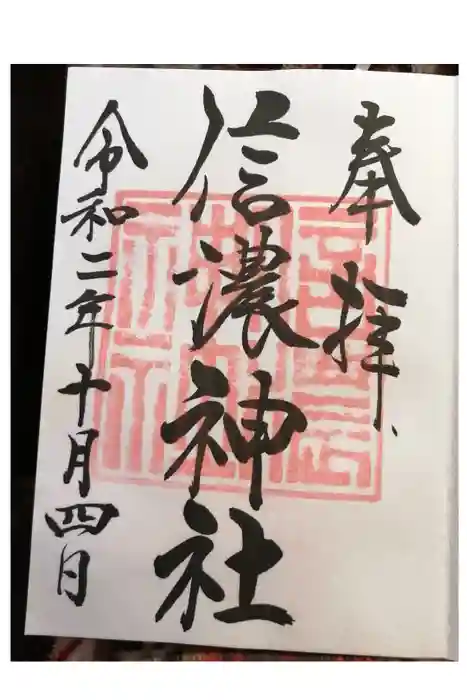 奉拝
信濃神社
令和二年十月四日